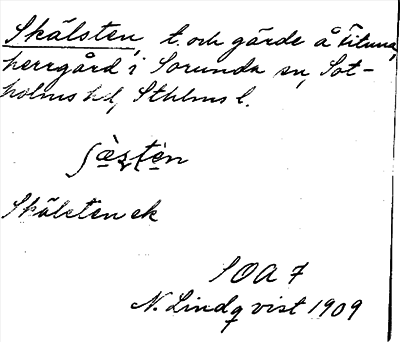 Skälsten, t. och gärde å Fituna
herrgård i Sorunda sn, Sot-
holms hd, Sthlms l.
ʃæ̀stèn
Skälsten ek
SOA 7
N. Lindqvist 1909